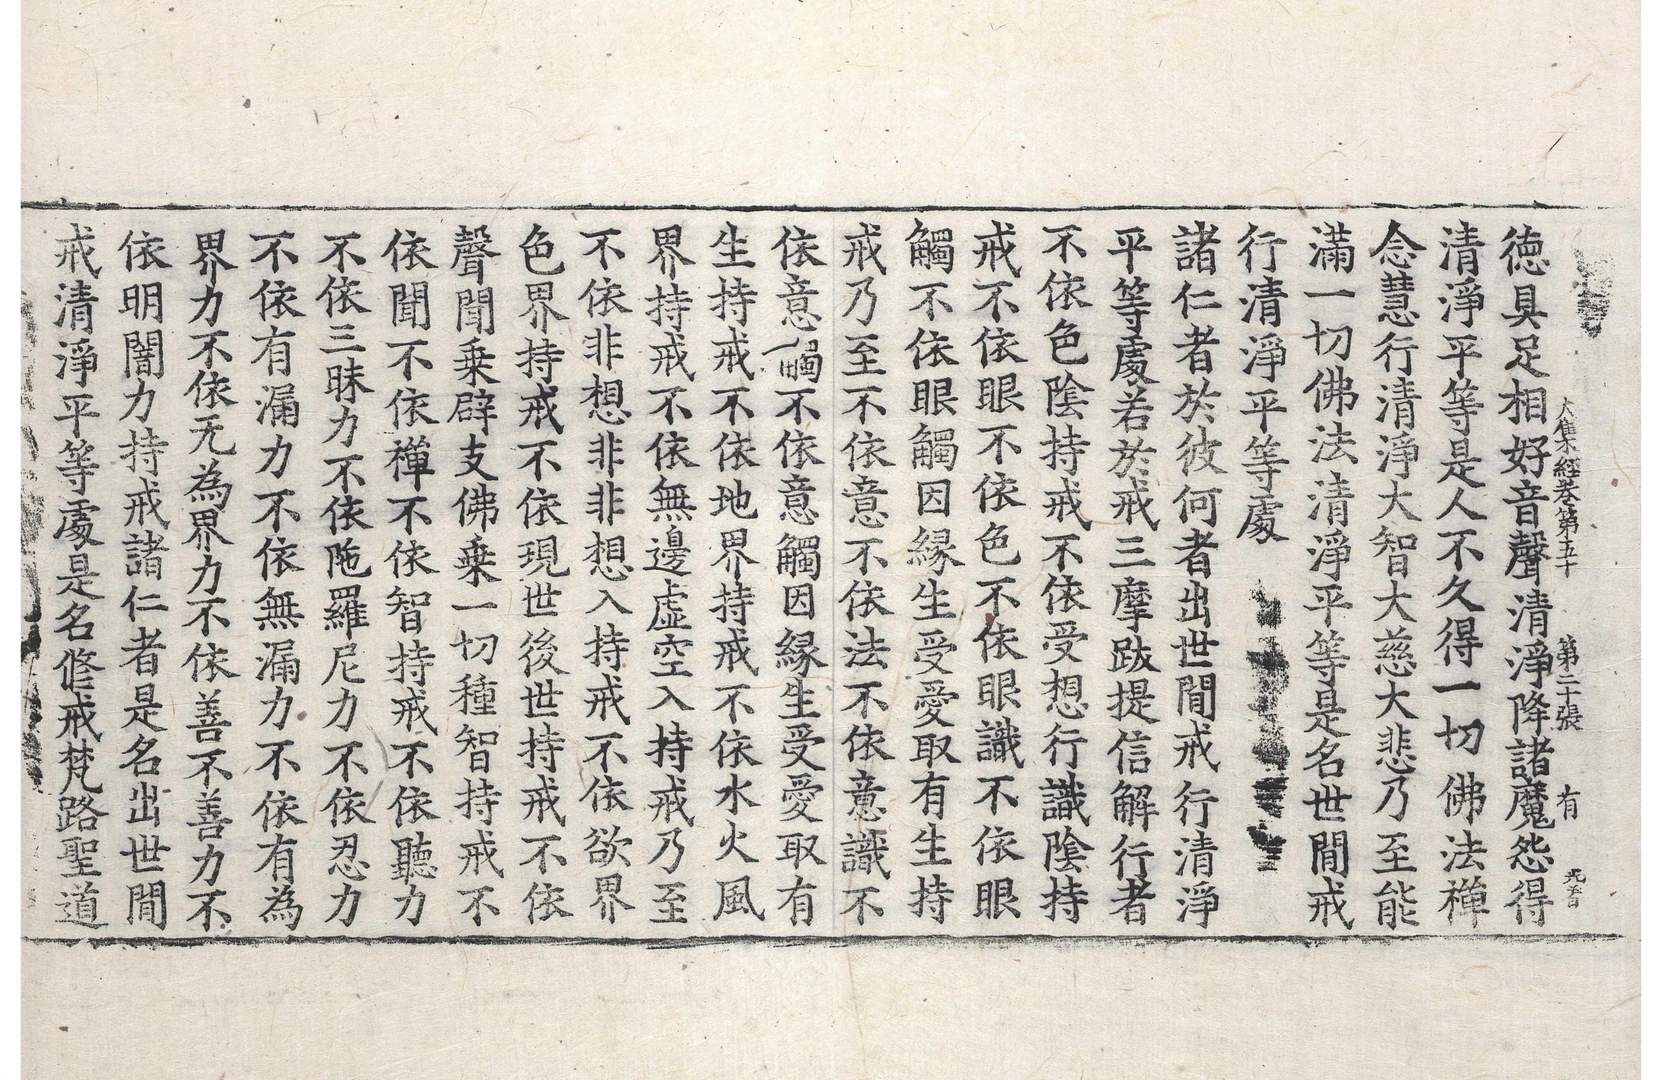 大集經卷第五十　第二十張　有
德具足相好音聲清淨降諸魔怨得
清淨平等是人不久得一切佛法禪
念慧行清淨大智大慈大悲乃至能
滿一切佛法清淨平等是名世間戒
行清淨平等處
諸仁者於彼何者出世間戒行清淨
平等處若於戒三摩跋提信解行者
不依色陰持戒不依受想行識陰持
戒不依眼不依色不依眼識不依眼
觸不依眼觸因緣生受愛取有生持
戒乃至不依意不依法不依意識不
依意觸不依意觸因緣生受愛取有
生持戒不依地界持戒不依水火風
界持戒不依無邊虛空入持戒乃至
不依非想非非想入持戒不依欲界
色界持戒不依現世後世持戒不依
聲聞乘辟支佛乘一切種智持戒不
依聞不依禪不依智持戒不依聽力
不依三昧力不依陁羅尼力不依忍力
不依有漏力不依無漏力不依有為
界力不依无為界力不依善不善力不
依明闇力持戒諸仁者是名出世間
戒清淨平等處是名修戒梵路聖道